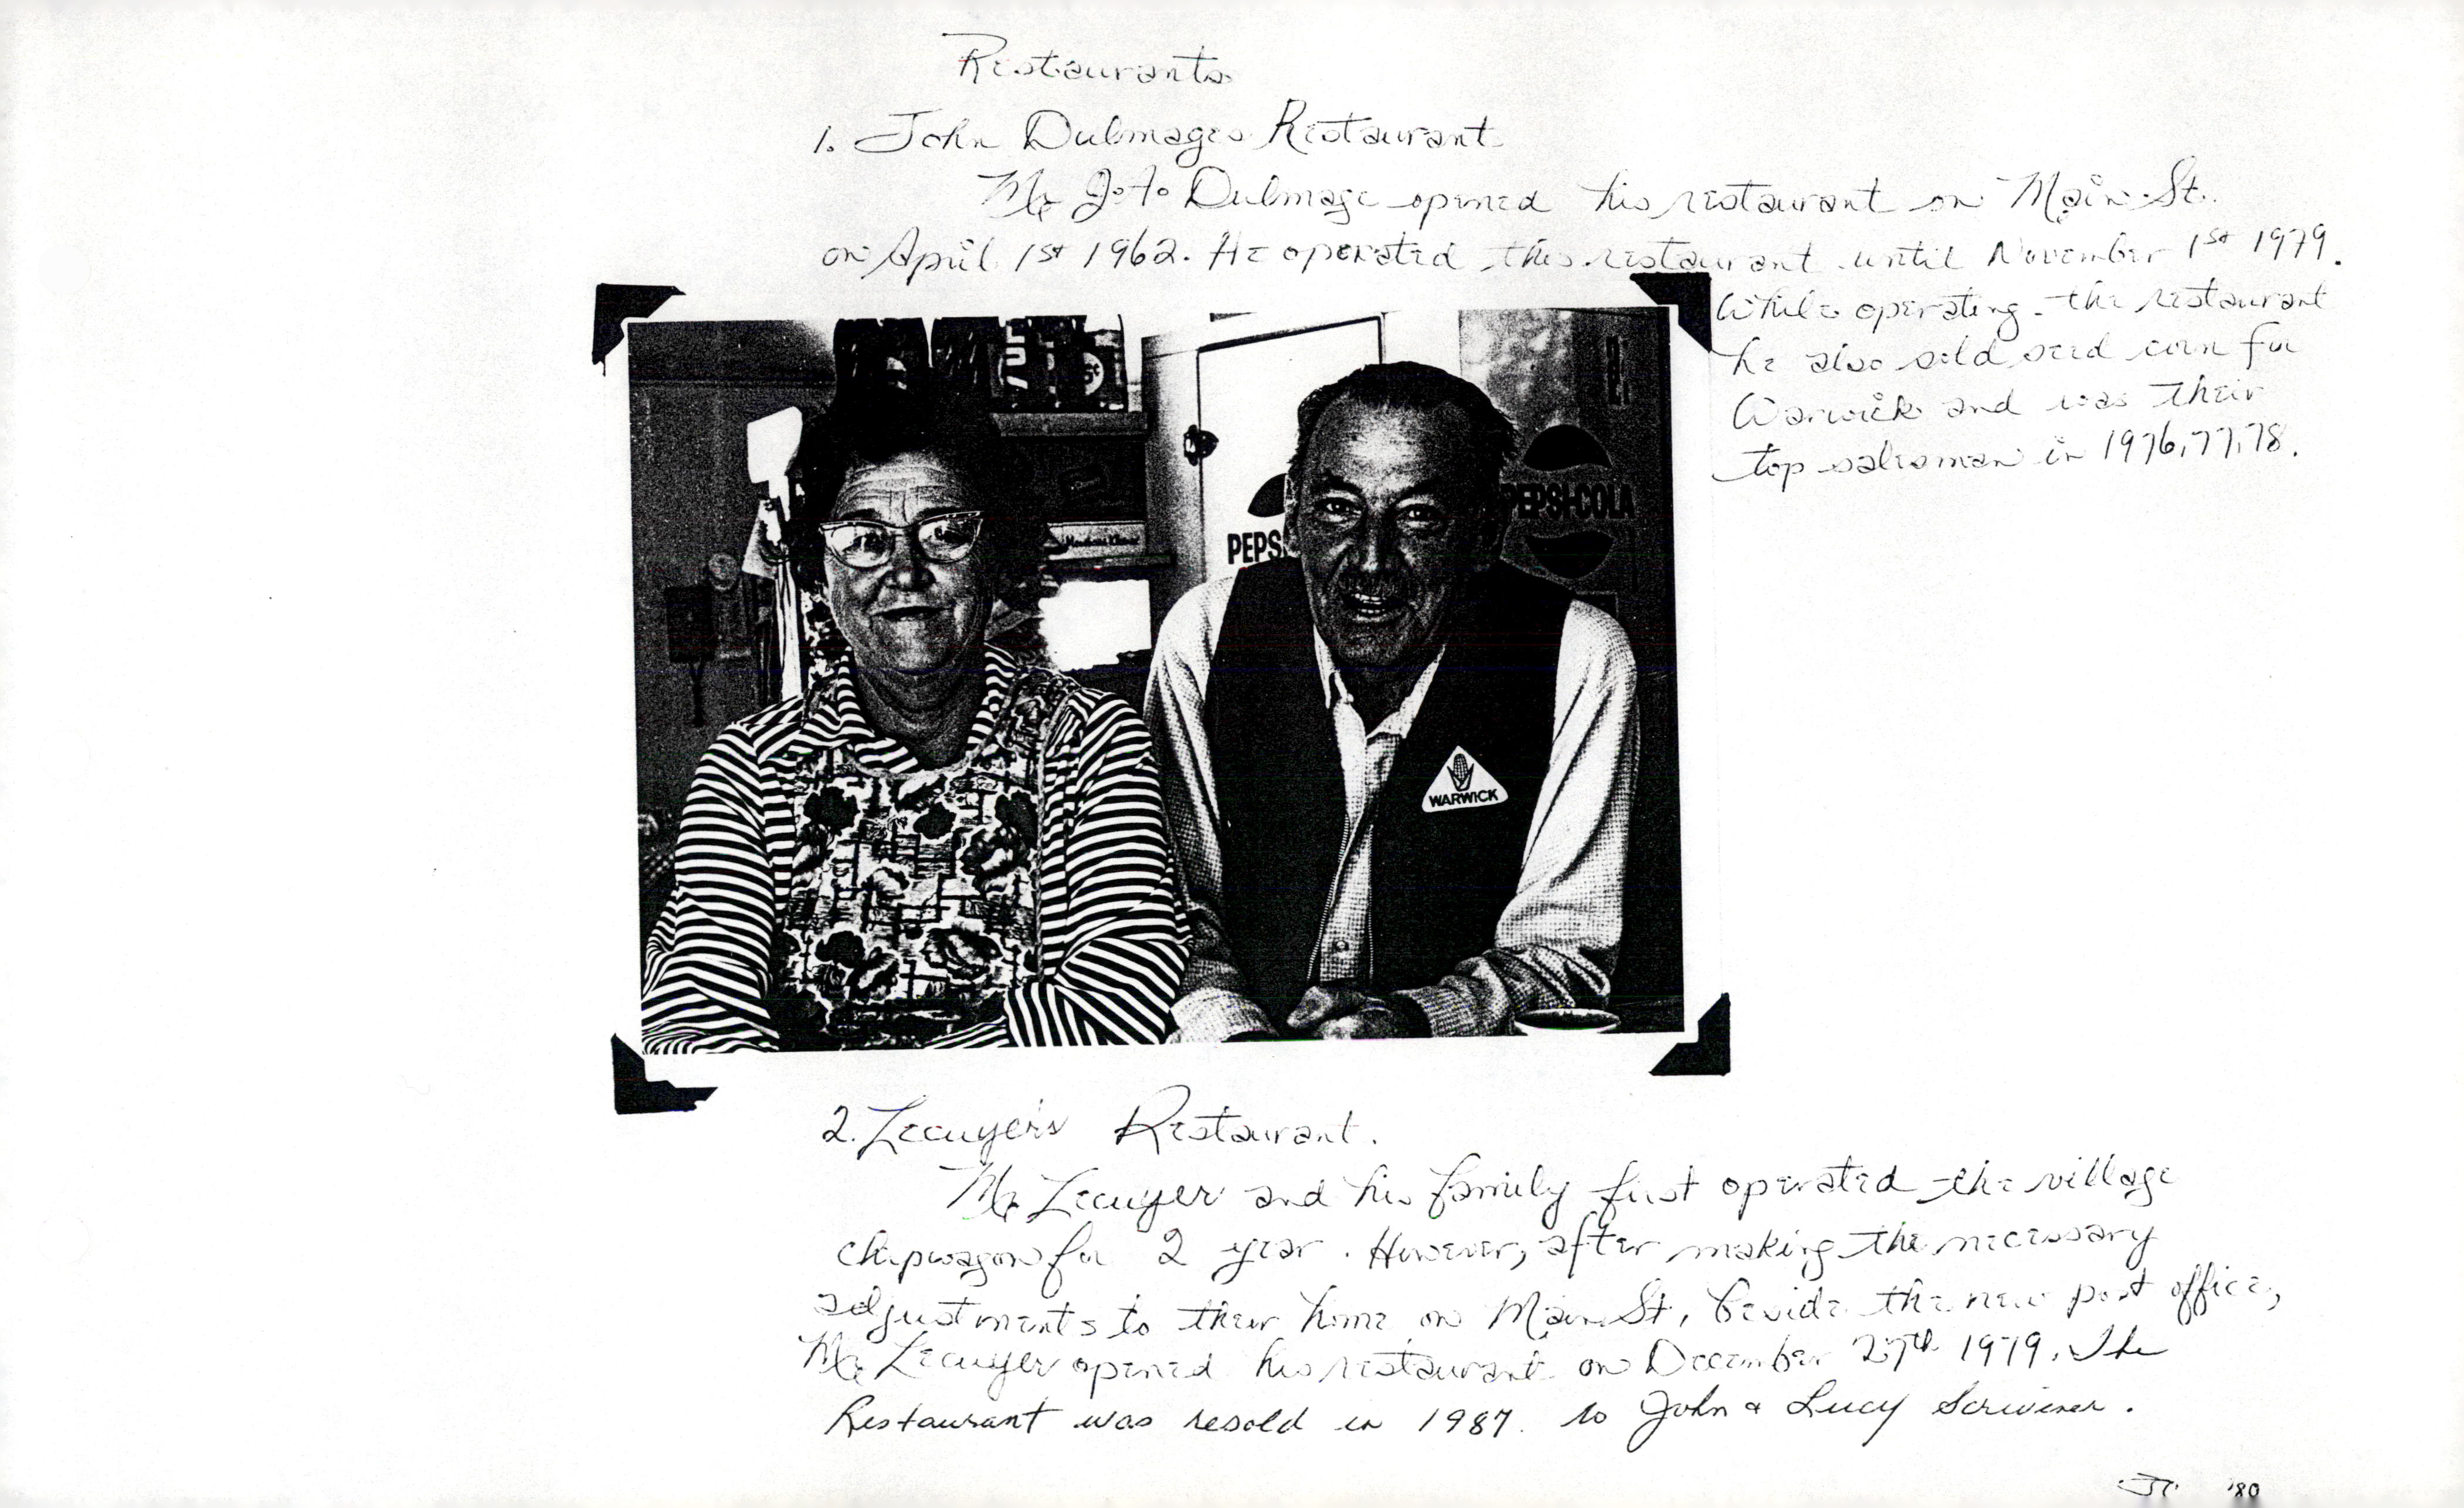 Restaurants
1. John Dulmages Restaurant
Mr J. A. Dulmage opened his restaurant on Main St.
on April 1st 1962. He operated this restaurant until November 1st 1979.
While operating the restaurant
he also sold seed corn for
Warwick and was their
top salesman in 1976, 77, 78.
PEPSI-COLA
PEPS
WARWICK
2. Lecuyer's Restaurant.
Mr Lecuyer and his family first operated the village
chipwagon for 2 year. However, after making the necessary
adjustments to their home on Main St, beside the new post office,
Mr Lecuyer opened his restaurant on December 27th 1979. The
Restaurant was resold in 1987 to John & Lucy Scrivener.
'80